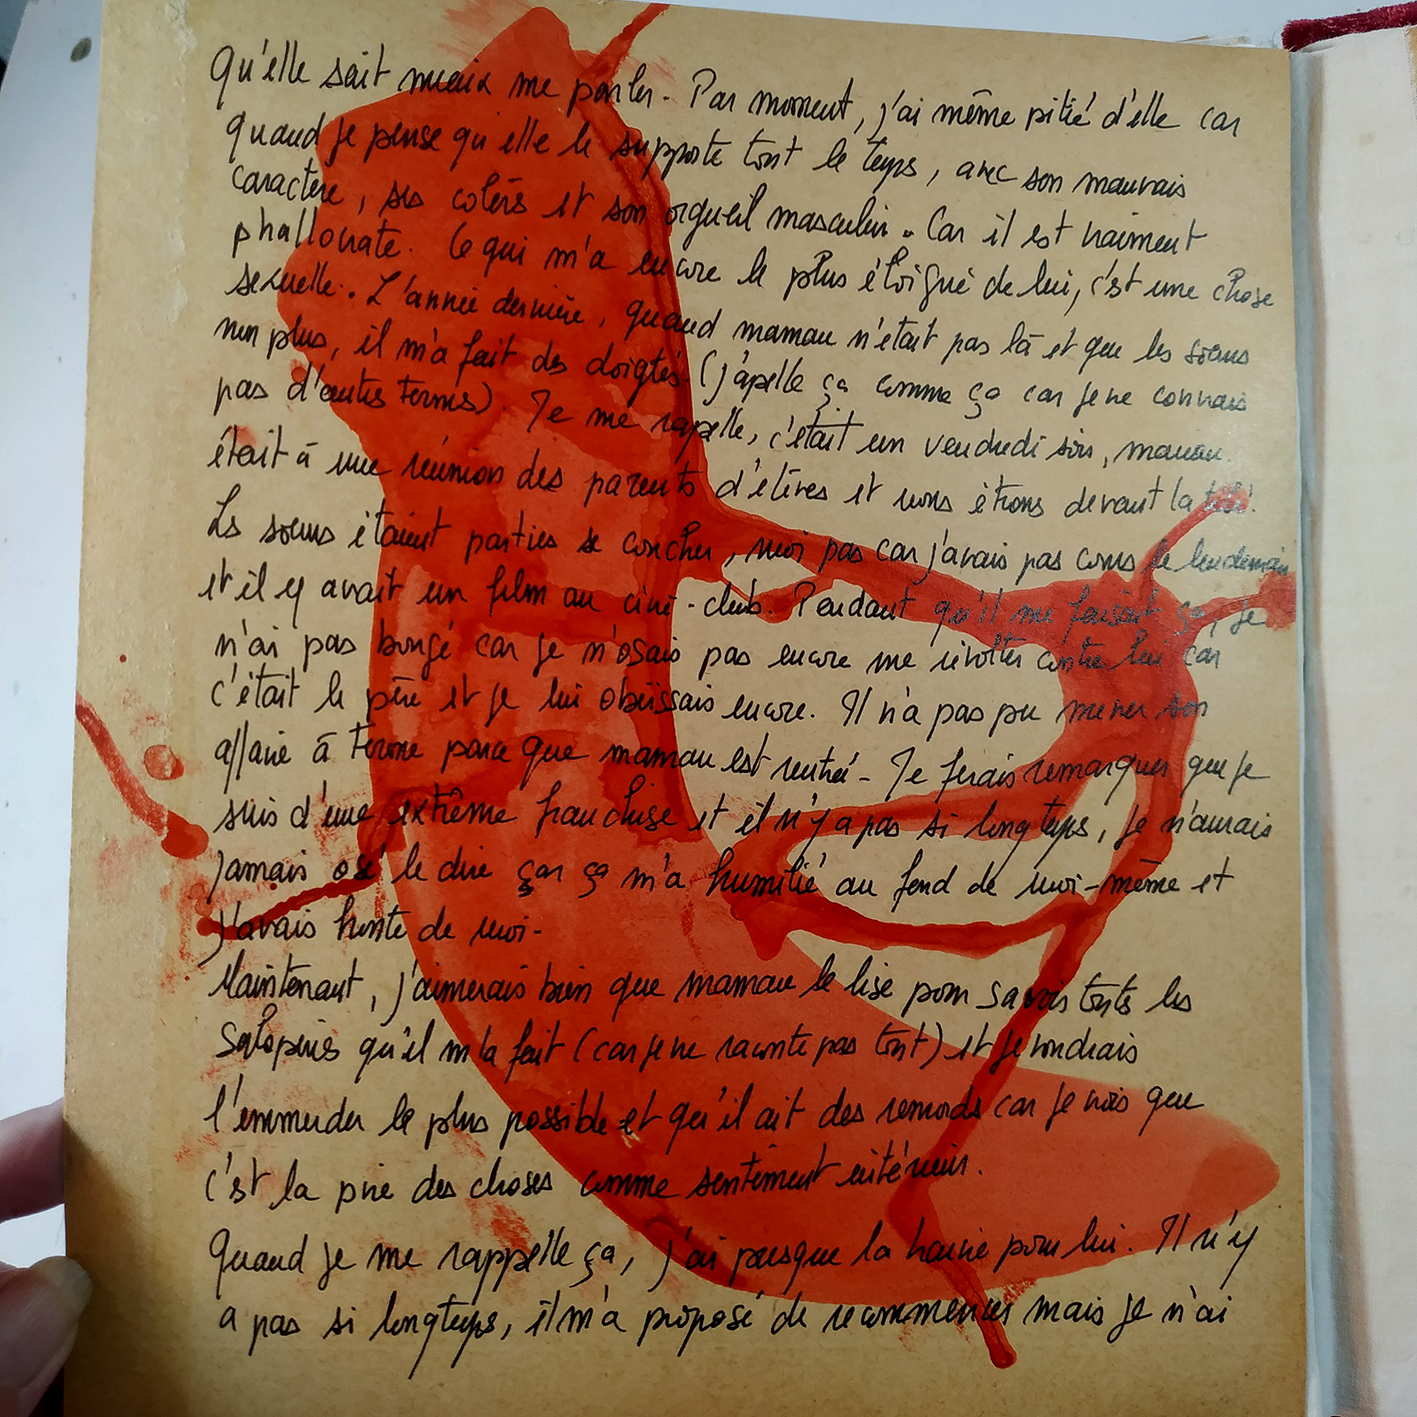 Qu'elle sait mieux me parler. Par moment, j'ai même pitié d'elle car
quand je pense qu'elle le supporte tout le temps, avec son mauvais
caractère, ses colères et son orgueil masculin. Car il est vraiment
phallocrate. Ce qui m'a encore le plus éloigné de lui, c'est une chose
sexuelle. L'année dernière, quand maman n'était pas là et que les sœurs
non plus, il m'a fait des doigtés (j'apelle ça comme ça car je ne connais
pas d'autres termes). Je me rapelle, c'était un vendredi soir, maman
était à une réunion des parents d'élèves et nous étions devant la télé.
Les sœurs étaient parties se coucher, moi pas car j'avais pas cours le lendemain
et il y avait un film au ciné-club. Pendant qu'il me faisait ça, je
n'ai pas bougé car je n'osais pas encore me révolter contre lui car
c'était le père et je lui obéissais encore. Il n'a pas pu mener son
affaire à terme parce que maman est rentré - Je ferais remarquer que je
suis d'une extrême franchise et il n'y a pas si longtemps, je n'aurais
jamais osé le dire car ça m'a humilié au fond de moi-même et
j'avais honte de moi-
Maintenant, j'aimerais bien que maman le lise pour savoir touts les
saloperies qu'il m'a fait (car je ne raconte pas tout) et je voudrais
l'emmerder le plus possible et qu'il ait des remords car je crois que
c'est la pire des choses comme sentiment intérieur.
Quand je me rappelle ça, j'ai presque la haine pour lui. Il n'y
a pas si longtemps, il m'a proposé de recommencer mais je n'ai